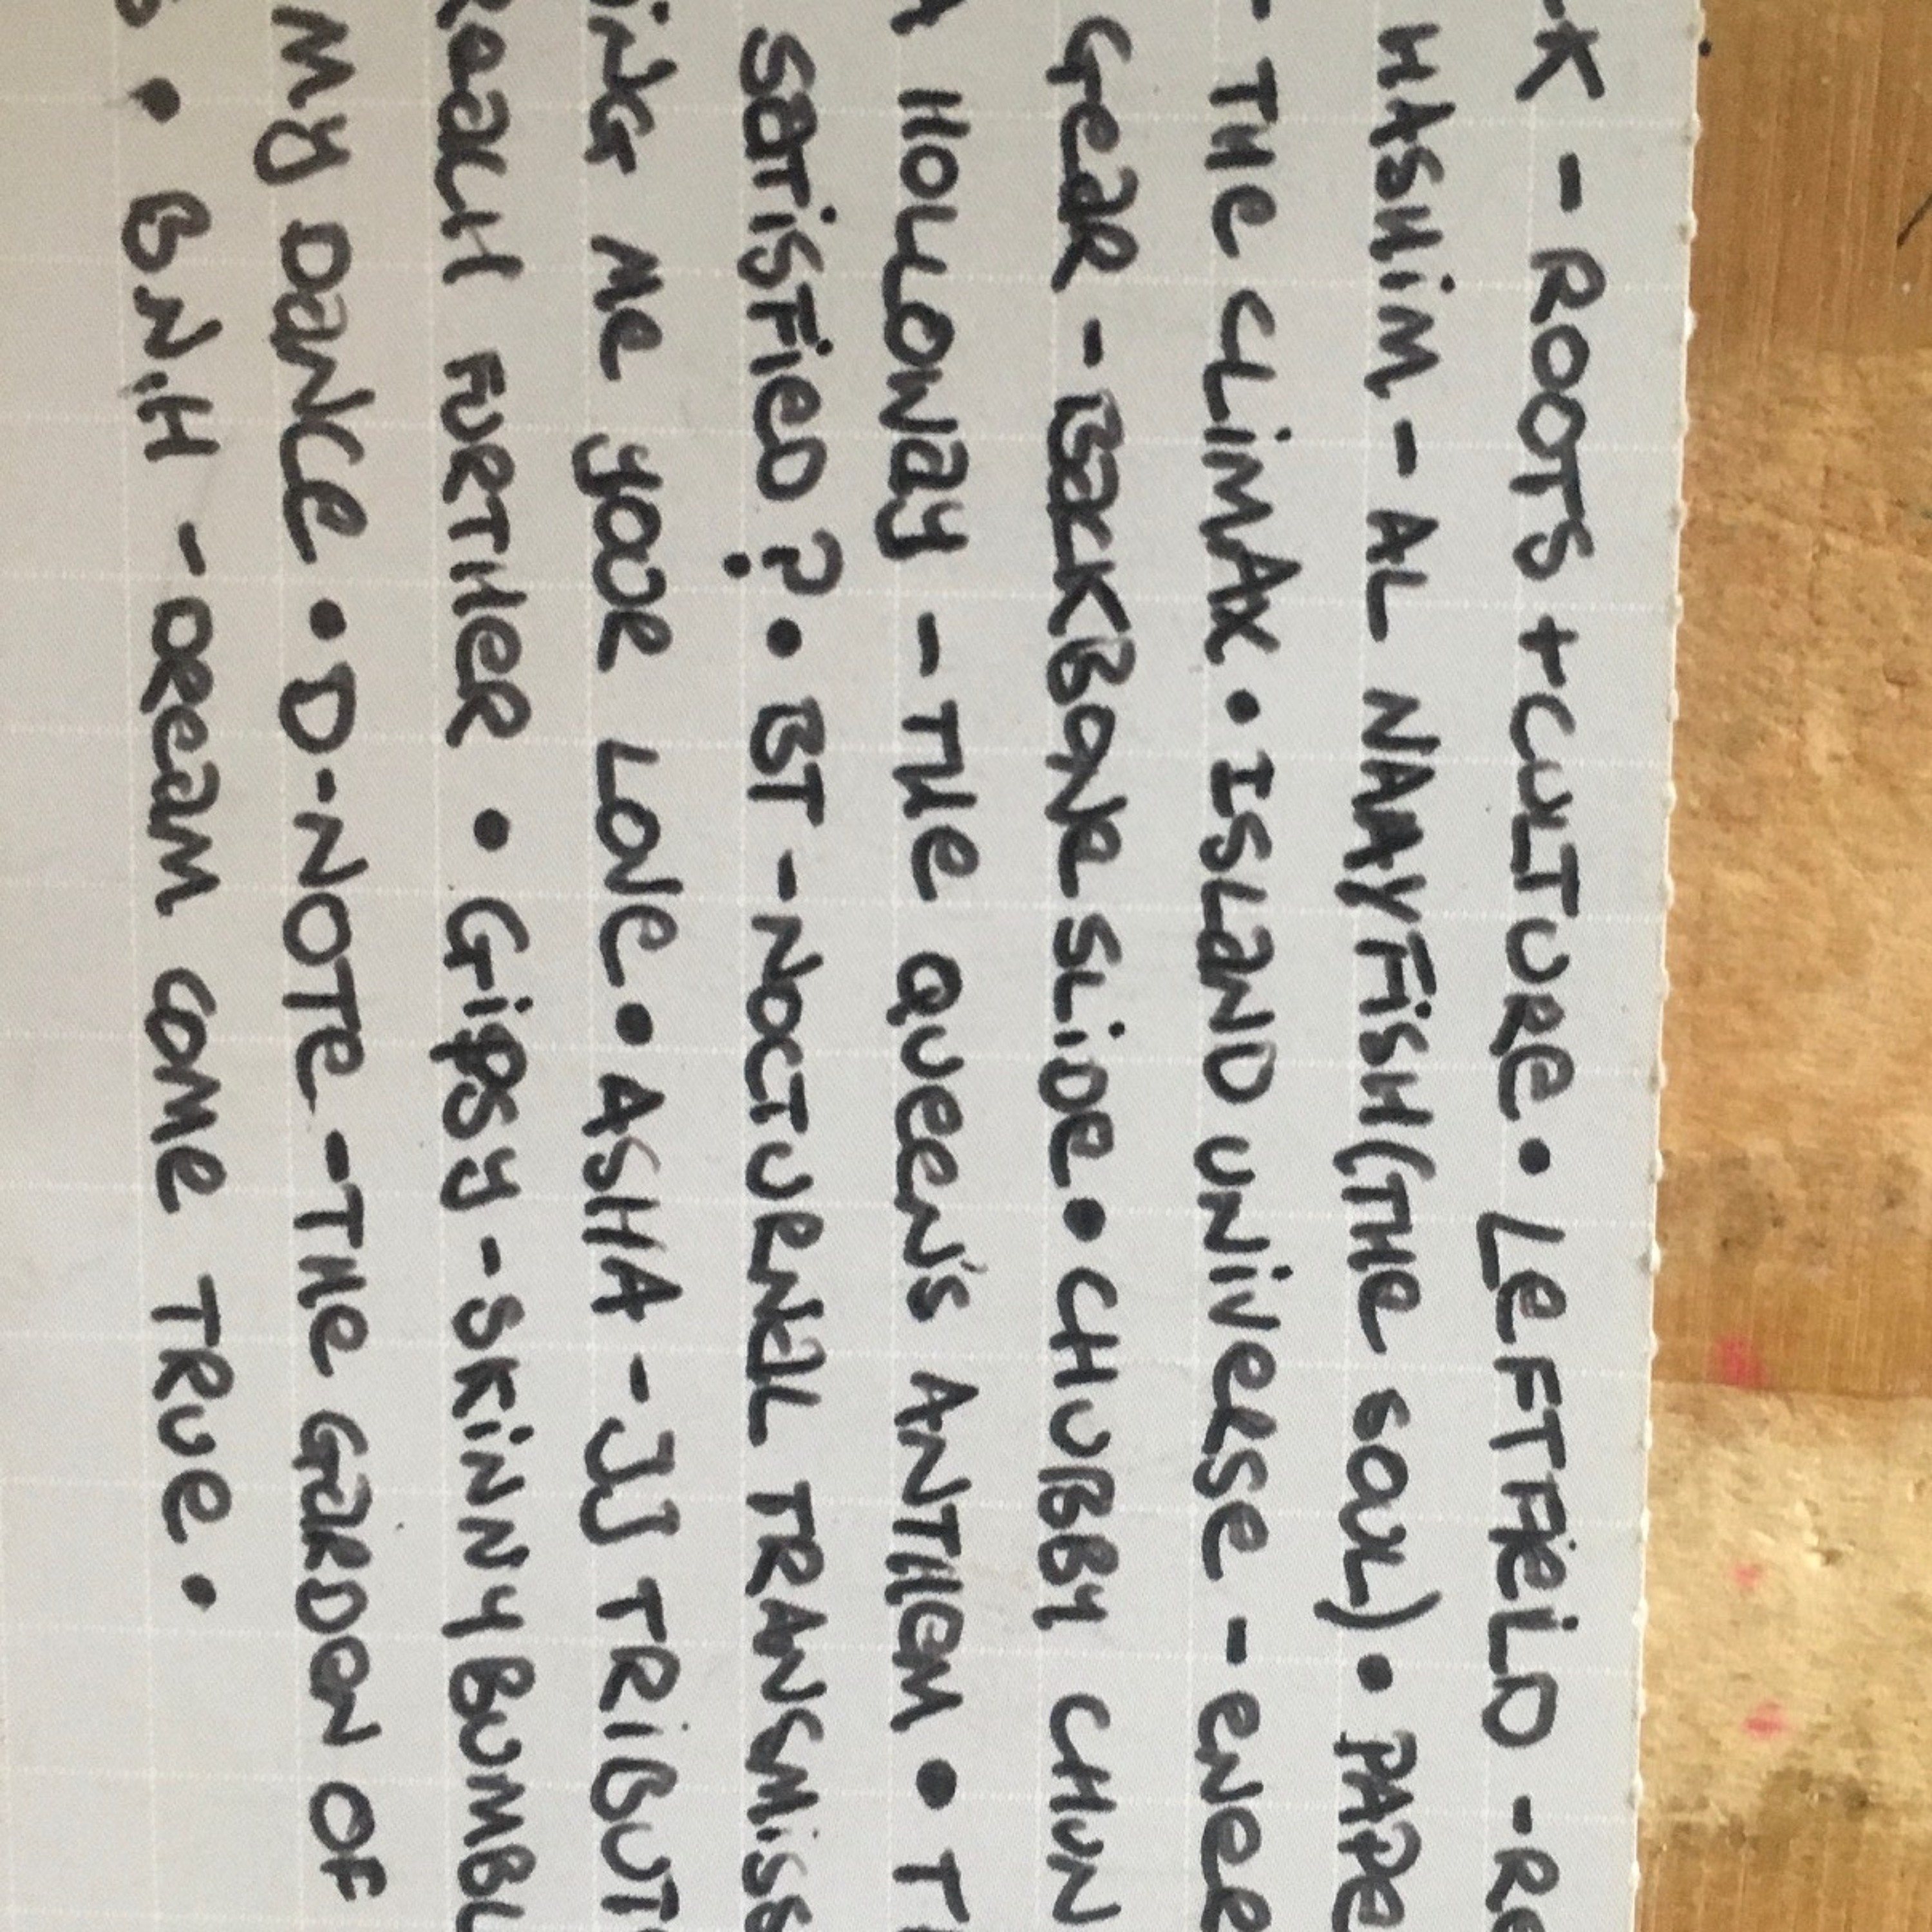 -K - ROOTS + CULTURE • LEFTFIELD - RE
HASHIM - AL NAAYFISH (THE SOUL) • PAPE
- THE CLIMAX • ISLAND UNIVERSE - ENER
GEAR - BACKBONE SLIDE • CHUBBY CHUN
A HOLLOWAY - THE QUEEN'S ANTHEM • T
SATISFIED? • BT - NOCTURNAL TRANSMISS
ING ME YOUR LOVE • ASHA - JJ TRIBUT
REACH FURTHER • GIPSY - SKINNYBUMBL
MY DANCE • D-NOTE - THE GARDEN OF
• B.N.H - DREAM COME TRUE •